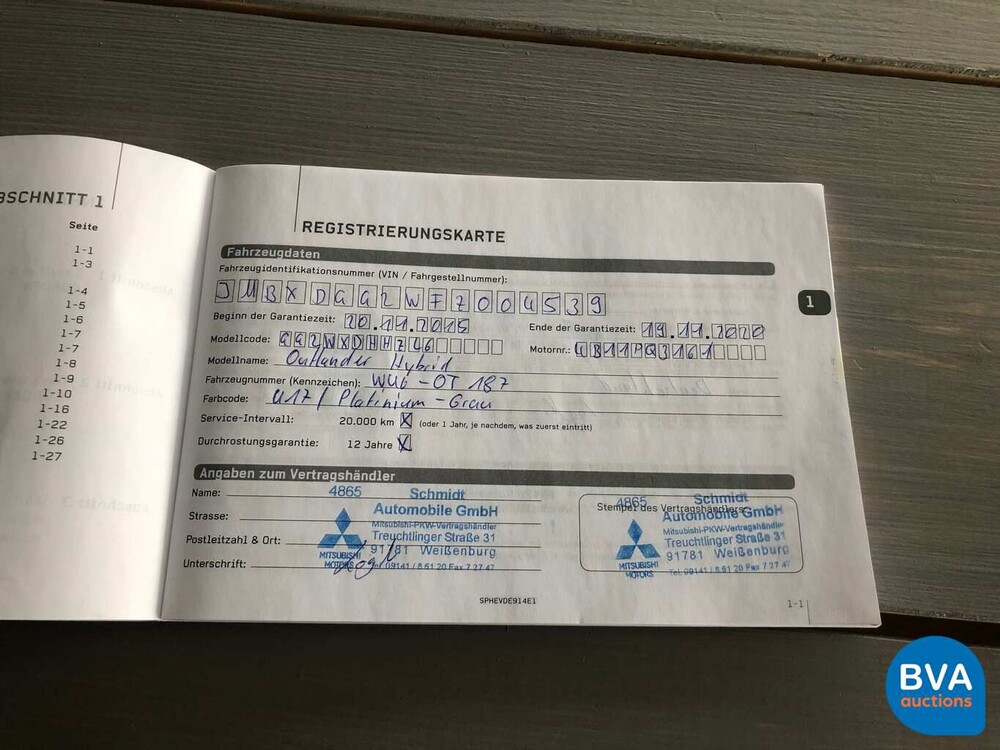 BSCHNITT 1
Seite
1-1
1-3
1-4
1-5
1-6
1-7
1-7
1-8
1-9
1-10
1-16
1-22
1-26
1-27
REGISTRIERUNGSKARTE
Fahrzeugdaten
Fahrzeugidentifikationsnummer (VIN / Fahrgestellnummer):
JMBXDGG2WFZ004539
Beginn der Garantiezeit: 20.11.2015 Ende der Garantiezeit: 19.11.2020
Modellcode: GG2WXDHHZL6 Motornr.: 4B11PQ3161
Modellname: Outlander Hybrid
Fahrzeugnummer (Kennzeichen): WUG-OT 187
Farbcode: U17 / Platinium-Grau
Service-Intervall: 20.000 km X (oder 1 Jahr, je nachdem, was zuerst eintritt)
Durchrostungsgarantie: 12 Jahre X
1
Angaben zum Vertragshändler
Name:
Strasse:
Postleitzahl & Ort:
Unterschrift:
4865 Schmidt
Automobile GmbH
Mitsubishi-PKW-Vertragshändler
Treuchtlinger Straße 31
91781 Weißenburg
Tel. 09141 / 8 61 20 Fax 7 27 47
MITSUBISHI
MOTORS
Stempel des Vertragshändlers:
4865 Schmidt
Automobile GmbH
Mitsubishi-PKW-Vertragshändler
Treuchtlinger Straße 31
91781 Weißenburg
Tel. 09141 / 8 61 20 Fax 7 27 47
MITSUBISHI
MOTORS
SPHEVDE914E1
1-1
BVA
auctions